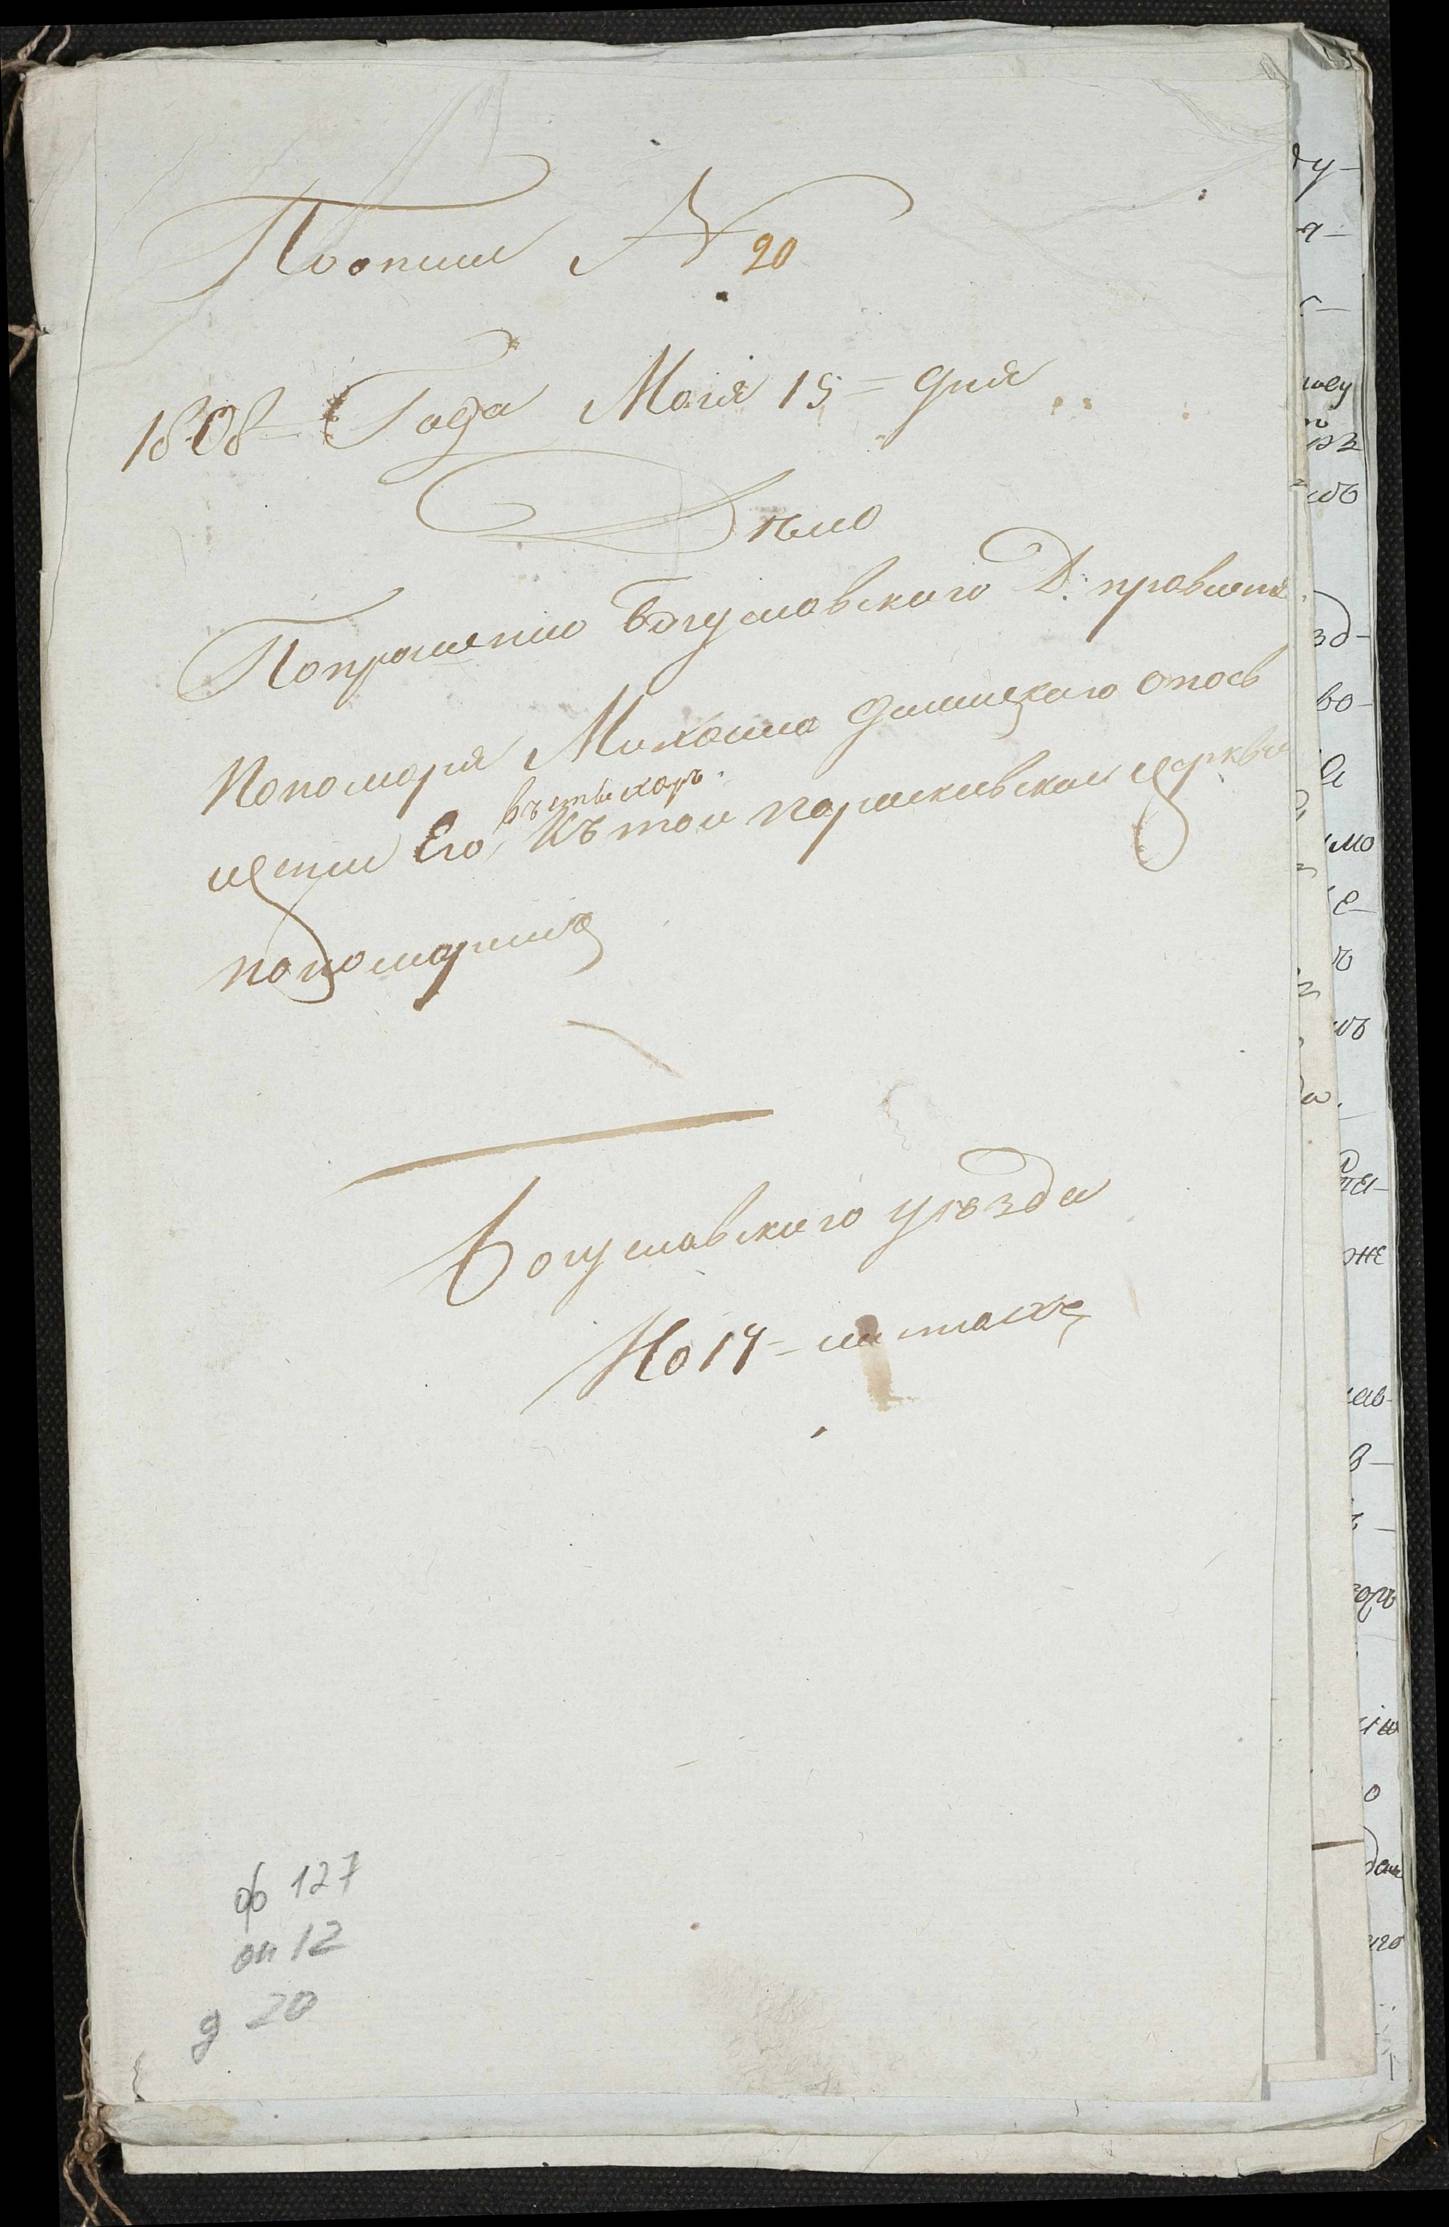 Поописи N 20
1808 Года Маія 15 = дня
Дѣло
Попрошению Богуславского Д: правленія
Пономаря Михаила Даниского опосв
щеніи Его въ стыхарь Къ той Параскевской церкви
пономаримъ
Богуславского уѣзда
На 14 листахъ
ф 127
оп 12
д 20